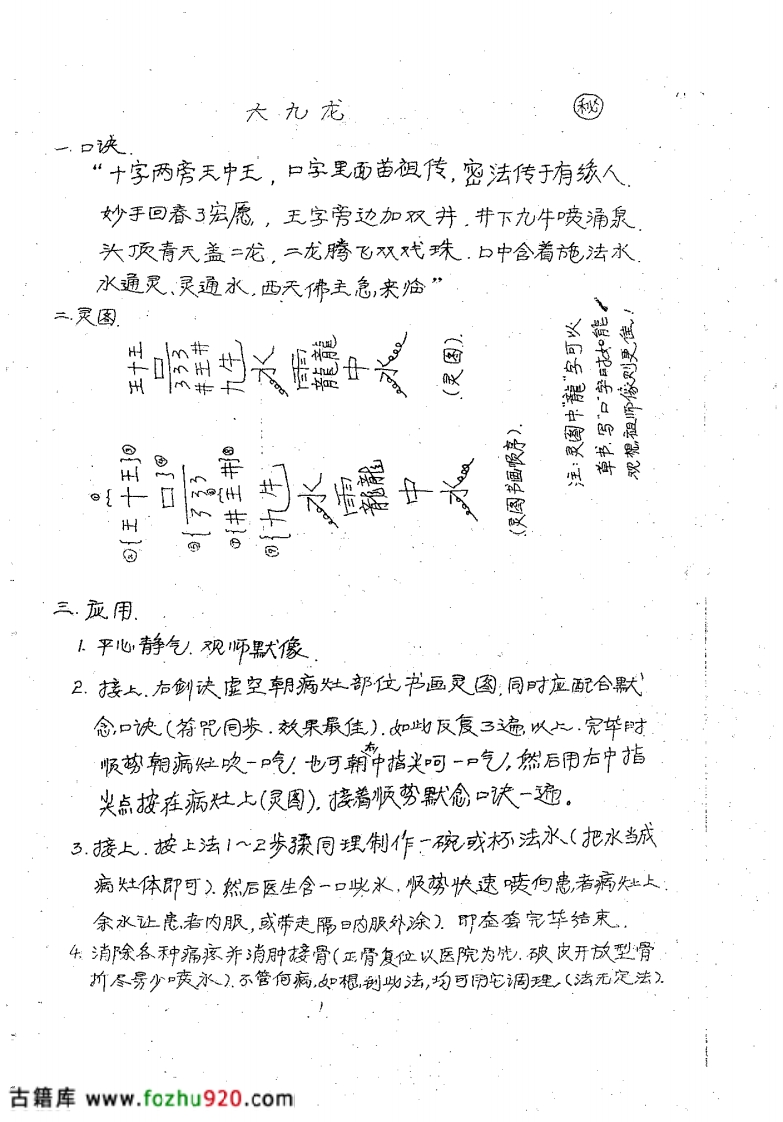 六九龙 秘
一.口诀.
“十字两旁王中王，口字里面苗祖传，密法传于有缘人.
妙手回春了宏愿，王字旁边加双井.井下九牛喷涌泉.
头顶青天盖二龙，二龙腾飞双戏珠.口中含着施法水.
水通灵、灵通水.西天佛主急来临”
二.灵图.
王十王
口
333
井王井
九牛
水
雨龍龍
中
水
(灵图).
注:灵图中“龍”字可以
草书.写“口”字时如能
观想祖师像则更佳!
①
②{王十王}③
口}④
⑤{333
⑦{井王井}⑧
⑨{九牛
水
雨龍龍
中
水
(灵图书画顺序).
三.应用.
1.平心静气.观师默像.
2.接上.右剑诀虚空朝病灶部位书画灵图,同时应配合默
念口诀(符咒同步.效果最佳).如此反复3遍以上.完毕时
顺势朝病灶吹一口气.也可朝右中指尖呵一口气,然后用右中指
尖点按在病灶上(灵图),接着顺势默念口诀一遍。
3.接上.按上法1~2步骤同理制作一碗或杯法水(把水当成
病灶体即可).然后医生含一口此水.顺势快速喷向患者病灶上.
余水让患者内服,或带走隔日内服外涂).即查套完毕结束.
4.消除各种痛疾并消肿接骨(正骨复位以医院为先.破皮开放型骨
折尽量少喷水).不管何病,如想到此法,均可用它调理.(法无定法).
1
古籍库 www.fozhu920.com